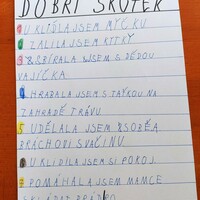 DOBRÝ SKUTEK
UKLIDILA JSEM MYČKU
ZALILA JSEM KYTKY
SBÍRALA JSEM S DĚDOU
VAJÍČKA
HRABALA JSEM S TAŤKOU NA
ZAHRADĚ TRÁVU
5 UDĚLALA JSEM SOBĚ A
BRÁCHOVI SVAČINU
UKLIDILA JSEM SI POKOJ
POMÁHALA JSEM MAMCE